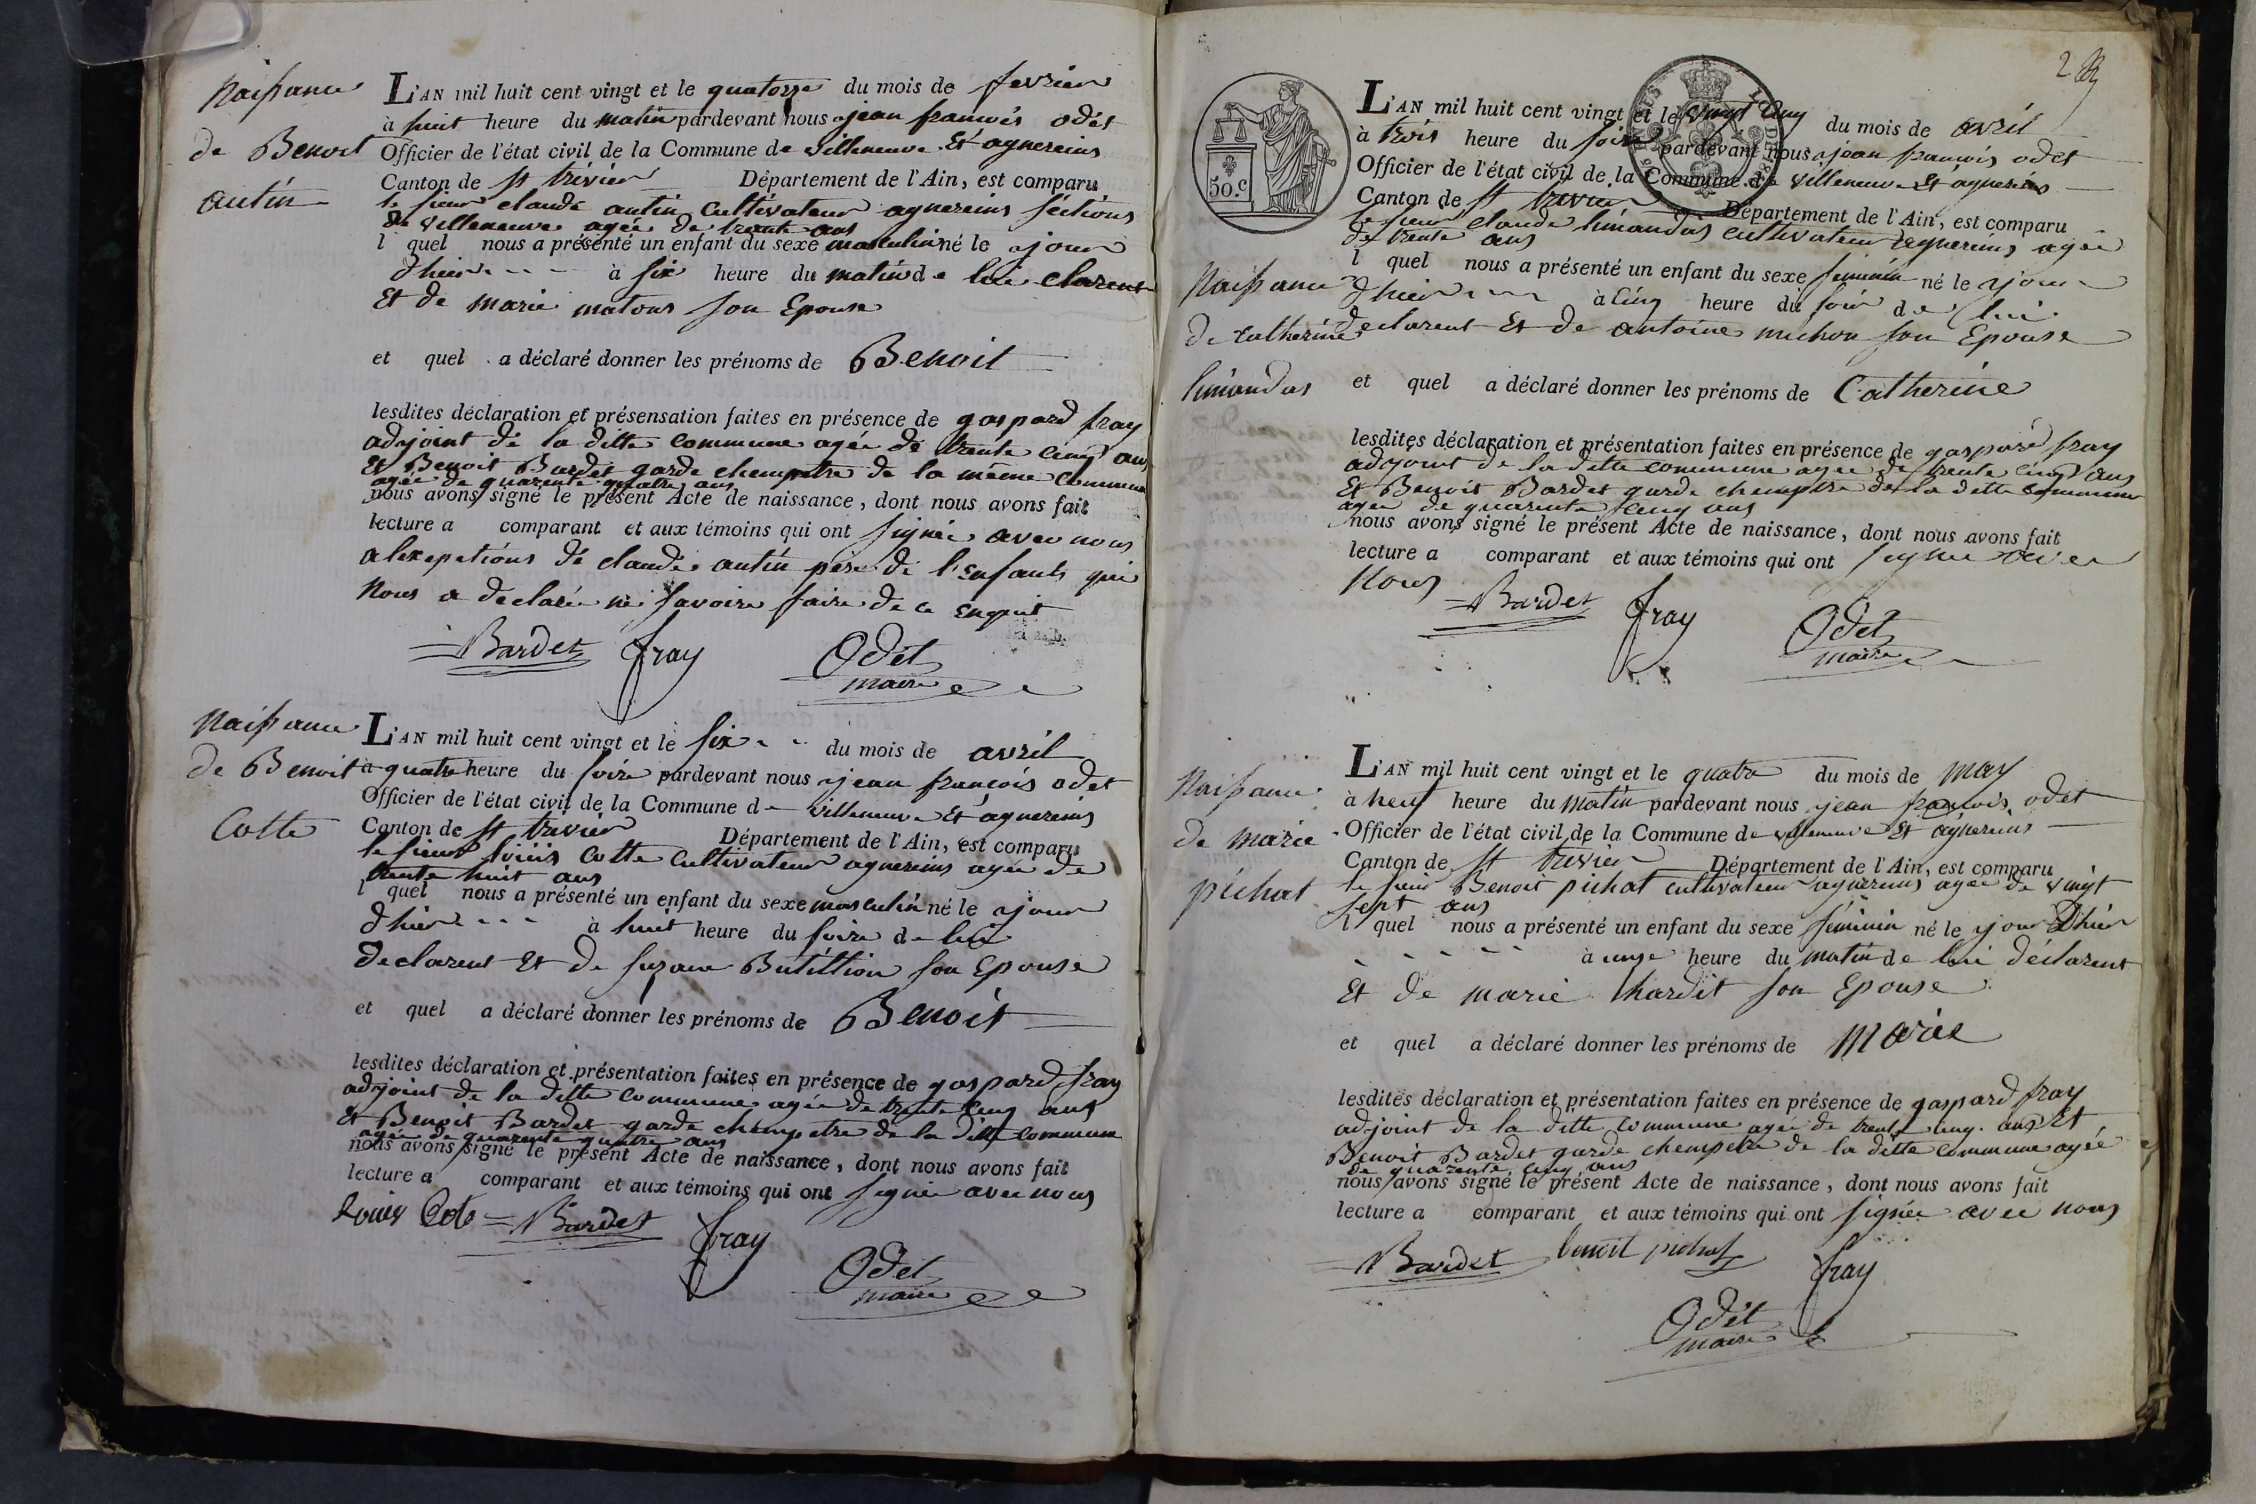 Naissance
de Benoit
autin
L'AN mil huit cent vingt et le quatorze du mois de fevrier
à huit heure du matin pardevant nous jean francois odet
Officier de l'état civil de la Commune de villeneuve Et agnereins
Canton de st trivier Département de l'Ain, est comparu
le sieur claude autin cultivateur agnereins séctions
de villeneuve agée de trante ans
l quel nous a présenté un enfant du sexe masculin né le jour
d'hier - - - à six heure du matin de lui clarent
Et de marie matour son Epouse
et quel a déclaré donner les prénoms de Benoit
lesdites déclaration et présensation faites en présence de gaspard fray
adjoint de la ditte commune agée de trente cinq ans
Et Benoit Bardet garde chempetre de la même commune
agée de quarente quatre ans
nous avons signé le présent Acte de naissance, dont nous avons fait
lecture a comparant et aux témoins qui ont signée avec nous
alexeptions dé claude autin père de l'enfants qui
Nous a declarée né savoire faire de ce enquit
Bardet fray Odet
maire
Naissance
de Benoit
Cotte
L'AN mil huit cent vingt et le six - - du mois de avril
à quatre heure du soire pardevant nous jean francois odet
Officier de l'état civil de la Commune de villeneuve Et agnereins
Canton de st trivier Département de l'Ain, est comparu
le sieur loüis Cotte cultivateur agnereins agée de
trente huit ans
l quel nous a présenté un enfant du sexe masculin né le jour
d'hier - - - à huit heure du soire de lui
declarent Et de suzane Butillion son Epouse
et quel a déclaré donner les prénoms de Benoit
lesdites déclaration et présentation faites en présence de gaspard fray
adjoint de la ditte commune agée de trente cinq ans
Et Benoit Bardet garde chempetre de la ditte commune
agée de quarente quatre ans
nous avons signé le présent Acte de naissance, dont nous avons fait
lecture a comparant et aux témoins qui ont signée avec nous
Louis Cote Bardet fray
Odet
maire
50.c
Naissance
de catherine
limandas
L'AN mil huit cent vingt et le vingt cinq du mois de avril
à trois heure du soire pardevant nous jean francois odet
Officier de l'état civil de la Commune de villeneuve Et agnereins
Canton de st trivier Département de l'Ain, est comparu
le sieur claude limandas cultivateur agnereins agée
de trente ans
l quel nous a présenté un enfant du sexe féminin né le jour
d'hier - - - à cinq heure du soir de lui
declarent Et de antoine michon son Epouse
et quel a déclaré donner les prénoms de Catherine
lesdites déclaration et présentation faites en présence de gaspard fray
adjoint de la ditte commune agée de trente cinq ans
Et Benoit Bardet garde chempetre de la ditte commune
agée de quarente cinq ans
nous avons signé le présent Acte de naissance, dont nous avons fait
lecture a comparant et aux témoins qui ont signée avec
Nous
Bardet fray Odet
maire
Naissance
de marie
pichat
L'AN mil huit cent vingt et le quatre du mois de may
à neuf heure du matin pardevant nous jean francois odet
Officier de l'état civil de la Commune de villeneuve Et agnereins
Canton de st trivier Département de l'Ain, est comparu
le sieur Benoit pichat cultivateur agnereins agée de vingt
sept ans
l quel nous a présenté un enfant du sexe féminin né le jour d'hier
- - - - - à unze heure du matin de lui déclarent
Et de marie thardit son Epouse
et quel a déclaré donner les prénoms de Marie
lesdites déclaration et présentation faites en présence de gaspard fray
adjoint de la ditte commune agée de trente cinq ans Et
Benoit Bardet garde chempetre de la ditte commune agée
de quarente cinq ans
nous avons signé le présent Acte de naissance, dont nous avons fait
lecture a comparant et aux témoins qui ont signée avec nous
Bardet benoit pichat fray
Odet
maire